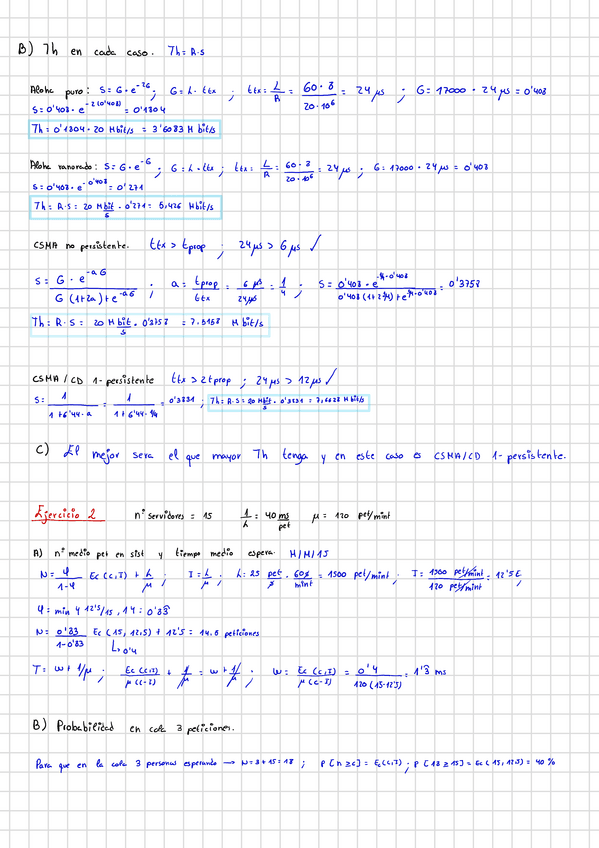 B) Th en cada caso. Th = R·S
Aloha puro: S = G·e^-2G ; G = λ·ttx ; ttx = L/R = 60·8/20·10^6 = 24 μs ; G = 17000·24 μs = 0'408
S = 0'408·e^-2(0'408) = 0'1804
Th = 0'1804·20 Mbit/s = 3'6083 Mbit/s
Aloha ranurado: S = G·e^-G ; G = λ·ttx ; ttx = L/R = 60·8/20·10^6 = 24 μs ; G = 17000·24 μs = 0'408
S = 0'408·e^-0'408 = 0'271
Th = R·S = 20 Mbit/s · 0'271 = 5,426 Mbit/s
CSMA no persistente. ttx > tprop ; 24 μs > 6 μs ✓
S = G·e^-aG / G(1+2a)+e^-aG ; a = tprop/ttx = 6 μs/24 μs = 1/4 ; S = 0'408·e^-1/4·0'408 / 0'408(1+2·1/4)+e^-1/4·0'408 = 0'3758
Th = R·S = 20 Mbit/s · 0'3758 = 7.5158 Mbit/s
CSMA/CD 1-persistente ttx > 2tprop ; 24 μs > 12 μs ✓
S = 1/1+6'44·a = 1/1+6'44·1/4 = 0'3831 ; Th = R·S = 20 Mbit/s · 0'3831 = 7,6628 Mbit/s
C) El mejor sera el que mayor Th tenga y en este caso es CSMA/CD 1-persistente.
Ejercicio 2 nº servidores = 15 1/λ = 40 ms/pet μ = 120 pet/mint
A) nº medio pet en sist y tiempo medio espera. M/M/15
N = φ/1-φ Ec(c,I) + λ/μ ; I = λ/μ ; λ = 25 pet/s · 60s/mint = 1500 pet/mint ; I = 1500 pet/mint / 120 pet/mint = 12'5 E,
φ = min {12'5/15, 1} = 0'83
N = 0'83/1-0'83 Ec(15, 12,5) + 12'5 = 14.5 peticiones
↳ 0'4
T = w + 1/μ ; Ec(c,I)/μ(c-I) + 1/μ = w + 1/μ ; w = Ec(c,I)/μ(c-I) = 0'4/120(15-12'5) = 1'3 ms
B) Probabilidad en cola 3 peticiones.
Para que en la cola 3 personas esperando → N = 3+15 = 18 ; P[n≥c] = Ec(c,I) ; P[18≥15] = Ec(15, 12,5) = 40 %